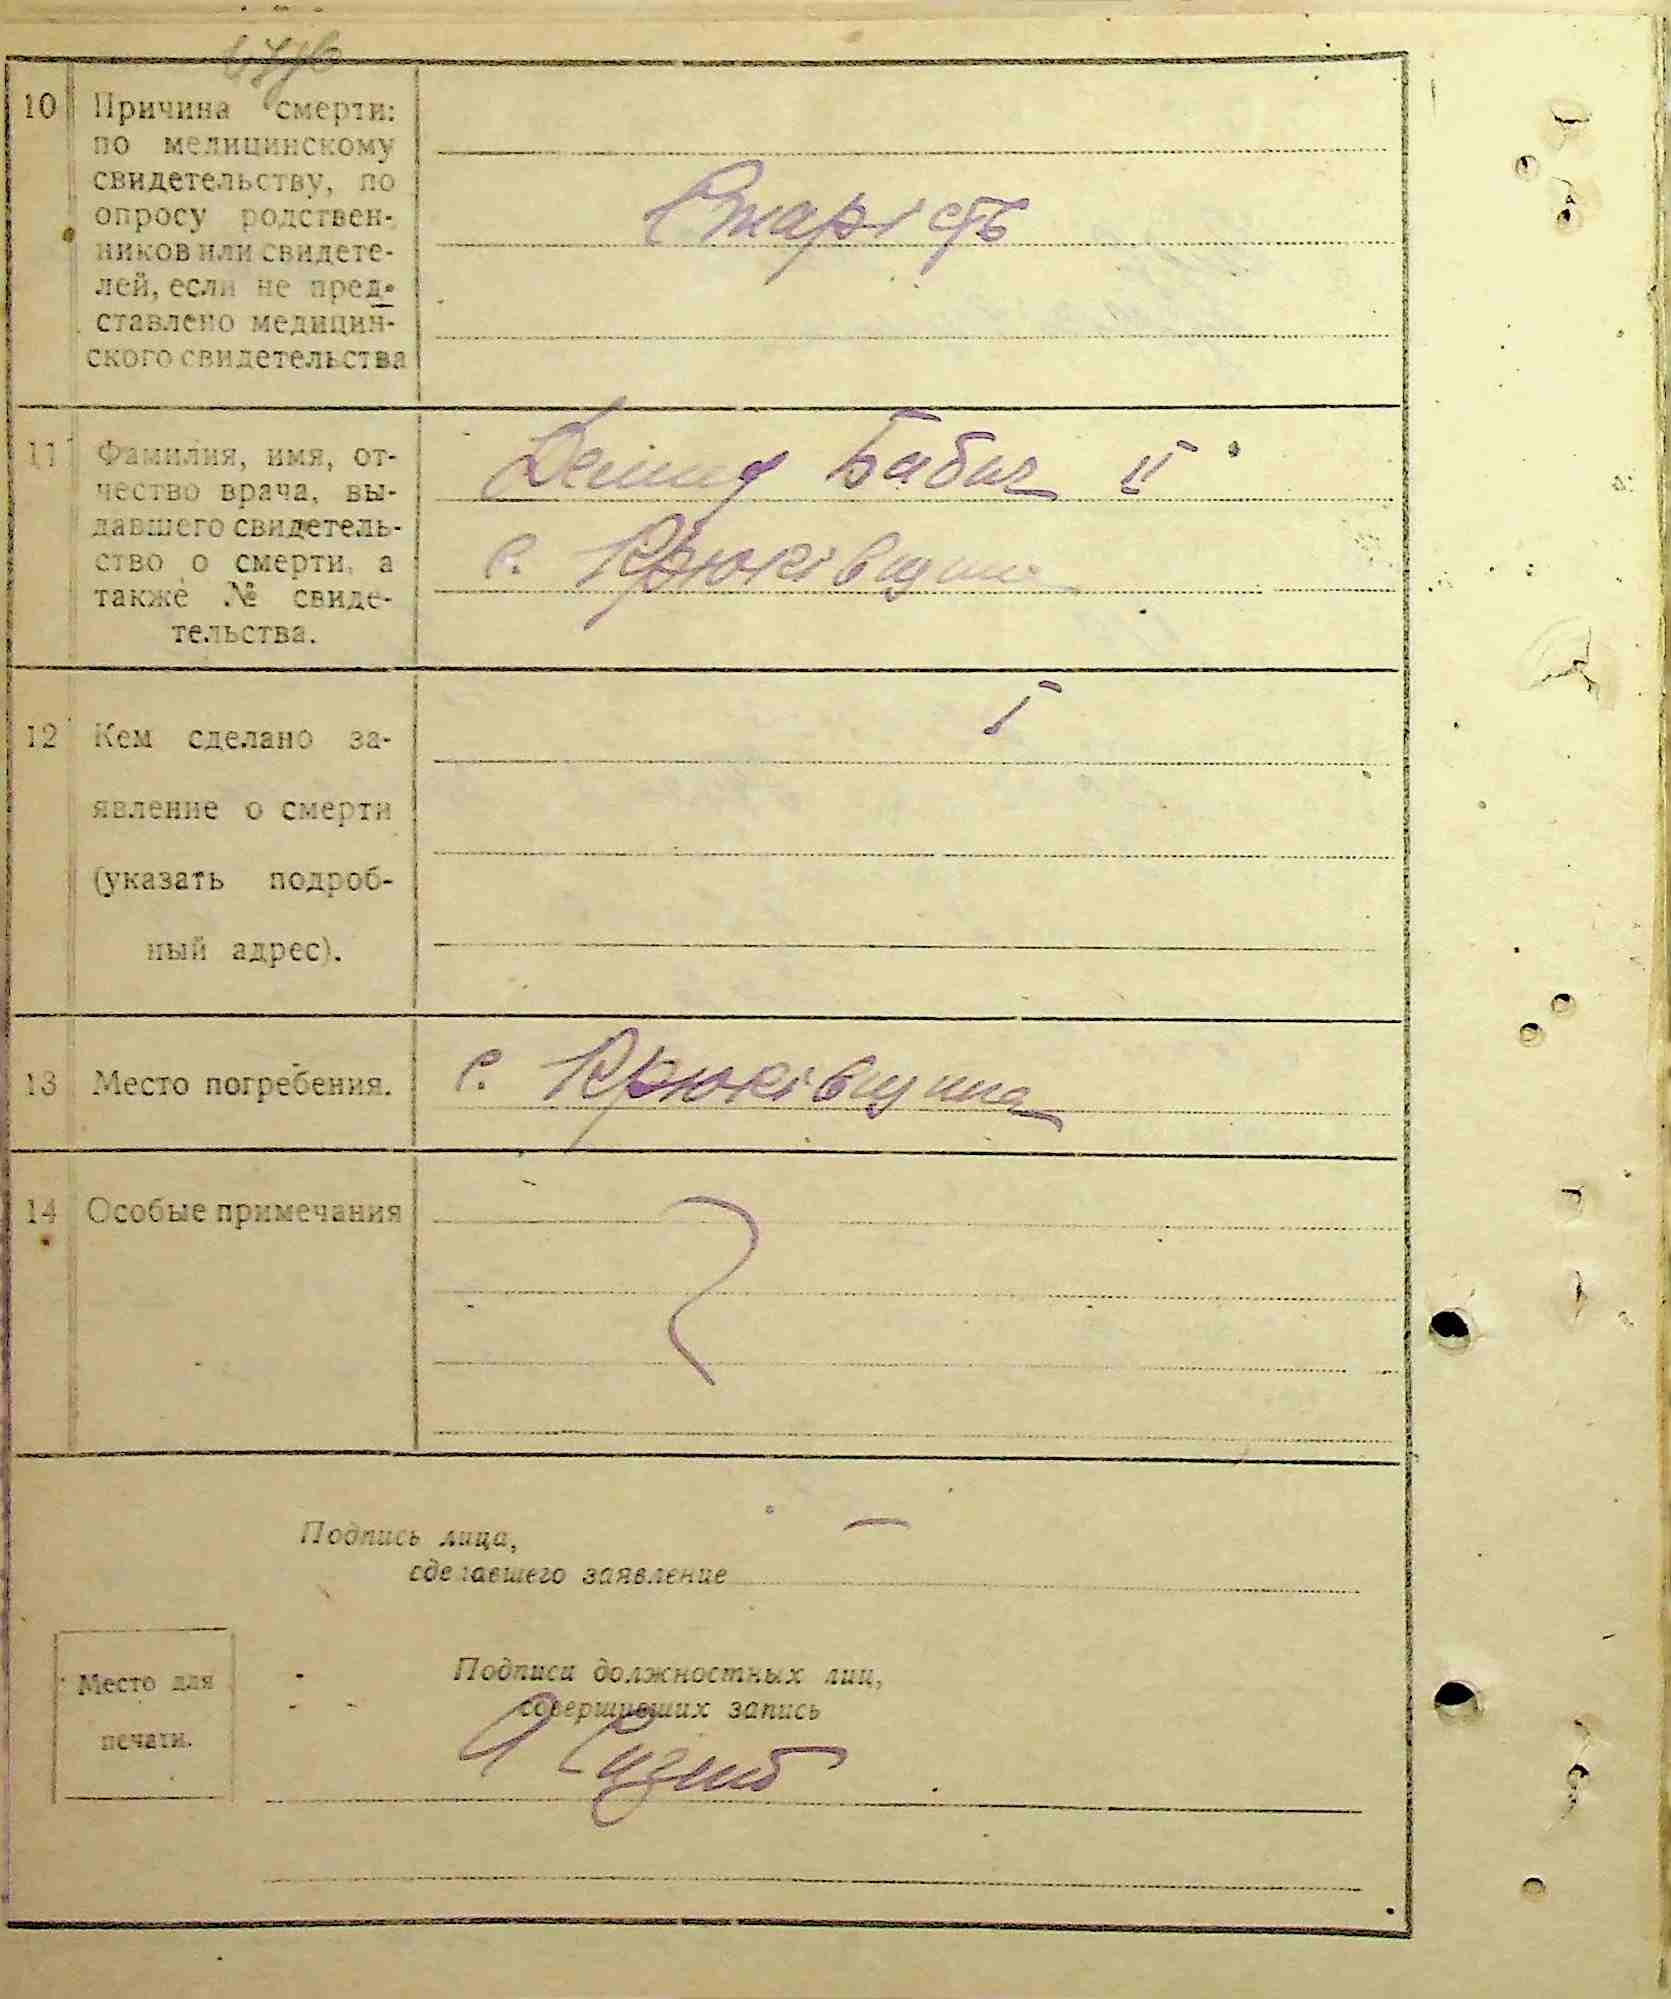 10 Причина смерти:
по медицинскому
свидетельству, по
опросу родствен-
ников или свидете-
лей, если не пред-
ставлено медицин-
ского свидетельства
Старість
11 Фамилия, имя, от-
чество врача, вы-
давшего свидетель-
ство о смерти, а
также № свиде-
тельства.
Демид Бабич II
с. Крюківщина
12 Кем сделано за-
явление о смерти
(указать подроб-
ный адрес).
I
13 Место погребения.
с. Крюківщина
14 Особые примечания
Подпись лица,
сделавшего заявление
Место для
печати.
Подписи должностных лиц,
совершивших запись